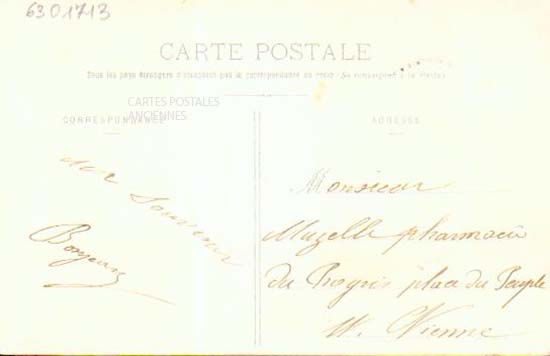 6301713
CARTE POSTALE
Tous les pays étrangers n'acceptent pas la correspondance au recto (Se renseigner à la Poste)
CARTES POSTALES
ANCIENNES
CORRESPONDANCE
ADRESSE
souvenir
Monsieur
Muzelle pharmacie
du Progrès place du Peuple
Vienne